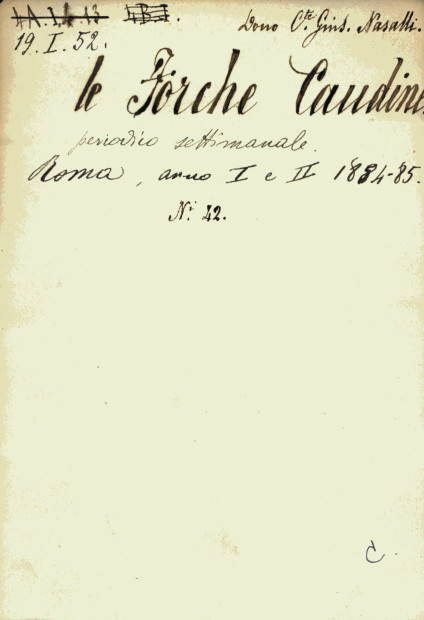 Dono C.te Gius. Nasalli.
19.I.52.
le Forche Caudine
periodico settimanale.
Roma, anno I e II 1884-85.
N.i 42.
C.